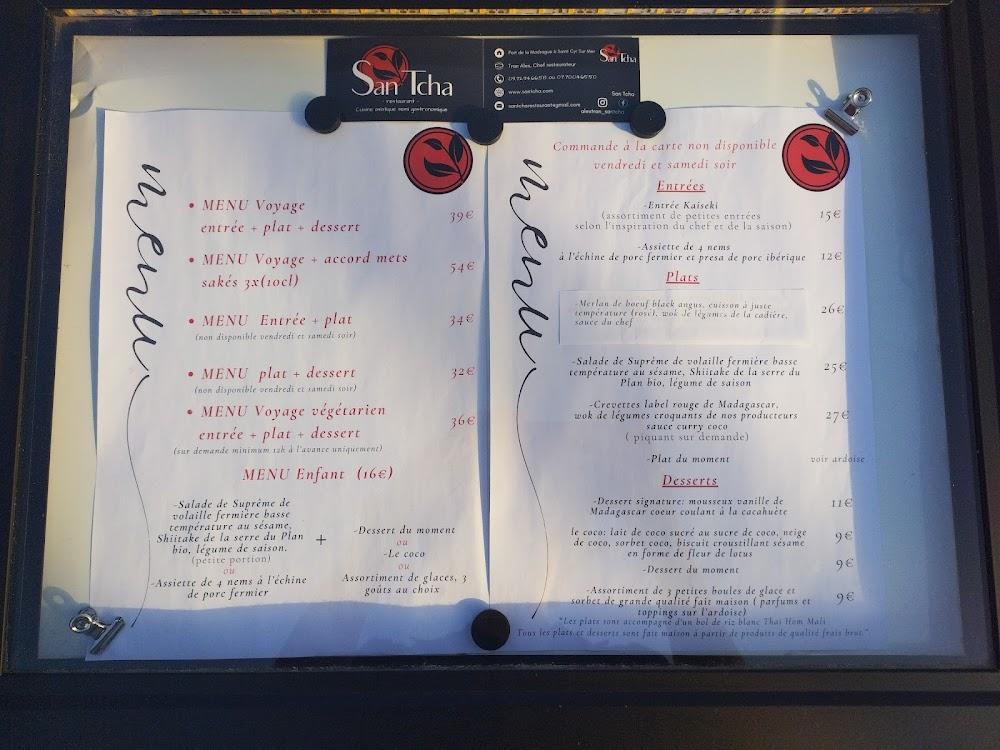 San Tcha
- restaurant -
Cuisine asiatique semi gastronomique
Port de la Madrague à Saint Cyr Sur Mer
Tran Alex, Chef restaurateur
www.santcha.com
santcharestaurant@gmail.com
San Tcha
San Tcha
alextran_santcha
menu
• MENU Voyage
entrée + plat + dessert
39€
• MENU Voyage + accord mets
sakés 3x(10cl)
54€
• MENU Entrée + plat
34€
(non disponible vendredi et samedi soir)
• MENU plat + dessert
32€
(non disponible vendredi et samedi soir)
• MENU Voyage végétarien
entrée + plat + dessert
36€
(sur demande minimum 12h à l'avance uniquement)
MENU Enfant (16€)
-Salade de Suprême de
volaille fermière basse
température au sésame,
Shiitake de la serre du Plan
bio, légume de saison.
(petite portion)
ou
-Assiette de 4 nems à l'échine
de porc fermier
+
-Dessert du moment
ou
-Le coco
ou
Assortiment de glaces, 3
goûts au choix
menu
Commande à la carte non disponible
vendredi et samedi soir
Entrées
-Entrée Kaiseki
(assortiment de petites entrées
selon l'inspiration du chef et de la saison)
15€
-Assiette de 4 nems
à l'échine de porc fermier et presa de porc ibérique
12€
Plats
-Merlan de boeuf black angus, cuisson à juste
température (rosé), wok de légumes de la cadière,
sauce du chef
26€
-Salade de Suprême de volaille fermière basse
température au sésame, Shiitake de la serre du
Plan bio, légume de saison
25€
-Crevettes label rouge de Madagascar,
wok de légumes croquants de nos producteurs
sauce curry coco
( piquant sur demande)
27€
-Plat du moment
voir ardoise
Desserts
-Dessert signature: mousseux vanille de
Madagascar coeur coulant à la cacahuète
11€
le coco: lait de coco sucré au sucre de coco, neige
de coco, sorbet coco, biscuit croustillant sésame
en forme de fleur de lotus
9€
-Dessert du moment
9€
-Assortiment de 3 petites boules de glace et
sorbet de grande qualité fait maison ( parfums et
toppings sur l'ardoise)
9€
"Les plats sont accompagné d'un bol de riz blanc Thai Hom Mali
Tous les plats et desserts sont fait maison à partir de produits de qualité frais brut."